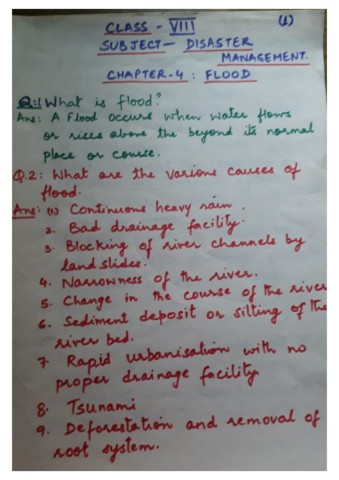 (1)
CLASS - VIII
SUBJECT - DISASTER
MANAGEMENT.
CHAPTER-4 : FLOOD
Q.1 What is flood?
Ans: A Flood occurs when water flows
or rises above the beyond its normal
place or course.
Q.2: What are the various causes of
flood.
Ans: (1) Continuous heavy rain.
2. Bad drainage facility.
3. Blocking of river channels by
land slides.
4. Narrowness of the river.
5. Change in the course of the river
6. Sediment deposit or silting of the
river bed.
7. Rapid urbanisation with no
proper drainage facility
8. Tsunami
9. Deforestation and removal of
root system.